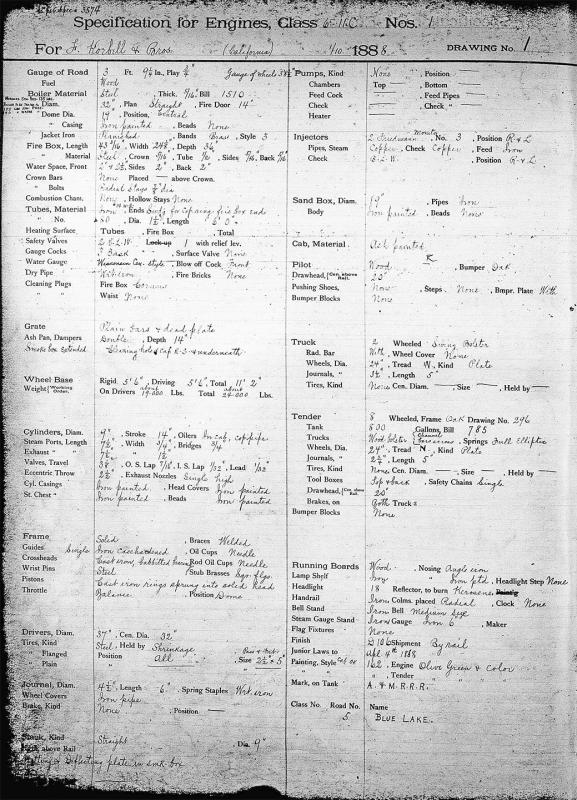 Specification for Engines, Class 6-11C Nos. 1
For F. Korbell & Bros. (California) 1/10 1888. DRAWING No. 1
Gauge of Road 3 Ft. 9¼ In., Play ¾ Gauge of wheels
Fuel Wood
Boiler Material Steel, Thick. 7/16 Bill 1510
Diam. 32", Plan Straight, Fire Door 14"
Dome Dia. 19", Position, Central
" Casing Iron painted, Beads None
Jacket Iron, Bands Brass, Style 3
Fire Box, Length 43 9/16, Width, Depth 36"
" Material Steel, Crown 7/16, Tube 7/16, Sides 7/16, Back 7/16
Water Space, Front, Sides 2", Back 2"
Crown Bars None Placed — above Crown.
" Bolts Radial Stays ⅞" dia
Combustion Cham. None, Hollow Stays None
Tubes, Material Iron, Ends Swdg for copering fire box ends
" No. 50 Diam. 1½, Length
Heating Surface Tubes, Fire Box, Total
Safety Valves 2 E.L.W. Lock-up 1 with relief lev.
Gauge Cocks 3 Bask, Surface Valve None
Water Gauge Wisconsin Cen. style, Blow off Cock Front
Dry Pipe, Fire Bricks None
Cleaning Plugs Fire Box Corners
" " Waist None
Grate Plain bars & dead plate
Ash Pan, Dampers Double, Depth 14"
Smoke box extended Cleaning hole & cap R.S. & underneath
Wheel Base Rigid 5' 6", Driving 5' 6", Total 11' 2"
Weight, Working Order. On Drivers about 19.000 Lbs. Total about 24.000 Lbs.
Cylinders, Diam. 9", Stroke 14", Oilers In cab, cop pipe
Steam Ports, Length 7½", Width ¾", Bridges ¾
Exhaust " " 7½", " 1½
Valves, Travel, O. S. Lap 7/16, I. S. Lap 1/32, Lead 1/32
Eccentric Throw, Exhaust Nozzles Single high
Cyl. Casings Iron painted, Head Covers Iron painted
St. Chest " Iron painted, Beads Iron painted
Frame Soled, Braces Welded
Guides Single Iron Casehardened, Oil Cups Needle
Crossheads Cast iron, babbitted, Rod Oil Cups Needle
Wrist Pins Steel, Stub Brasses
Pistons Cast iron rings sprung into soled head
Throttle Balance, Position Dome
Drivers, Diam. 37" Cen. Dia. 32"
Tires, Kind Steel, Held by Shrinkage
" Flanged Position All " Size 2½ x 5"
" Plain
Journal, Diam. 4½, Length 6", Spring Staples Wrt. iron
Wheel Covers Iron pipe
Brake, Kind None, Position —
Stack, Kind Straight
above Rail Dia. 9"
Netting & Deflecting plate in smk box
Pumps, Kind None, Position
Chambers Top — Bottom —
Feed Cock — " , Feed Pipes —
Check — " , Check " —
Heater
Injectors 2 Friedmann No. 3, Position R & L
Pipes, Steam Copper, Check Copper, Feed Iron
Check E.L.W., Position R & L
Sand Box, Diam. 19", Pipes Iron
Body Iron painted, Beads None
Cab, Material Ash painted
Pilot Wood, Bumper Oak
Drawhead, Cen. above Rail. 23"
Pushing Shoes, None, Steps None, Bmpr. Plate With
Bumper Blocks None
Truck 2 Wheeled Swing Bolster
Rad. Bar With, Wheel Cover None
Wheels, Dia. 24", Tread W., Kind Plate
Journals, " , Length 5"
Tires, Kind None Cen. Diam. —, Size —, Held by —
Tender 8 Wheeled, Frame Oak Drawing No. 296
Tank 800 Gallons, Bill 785
Trucks Wood bolster Channel, Springs Full Elliptic
Wheels, Dia. 24", Tread N, Kind Plate
Journals, " 2¾, Length 5"
Tires, Kind None Cen. Diam —, Size —, Held by —
Tool Boxes Top & back, Safety Chains Single
Drawhead, Cen. above Rail. 20"
Brakes, on Both Trucks
Bumper Blocks None
Running Boards Wood, Nosing Angle iron
Lamp Shelf Iron " Iron ptd, Headlight Step None
Headlight 18 Reflector, to burn Kerosene
Handrail Iron Colms. placed Radial, Clock None
Bell Stand Iron Bell Medium size
Steam Gauge Stand Iron Gauge Iron 6", Maker
Flag Fixtures None
Finish Shipment By rail
Junior Laws to Apl. 4th 1888
Painting, Style 162, Engine Olive Green & color
" Tender "
Mark, on Tank A. & M. R. R. R.
Class No. Road No. Name
5. BLUE LAKE.